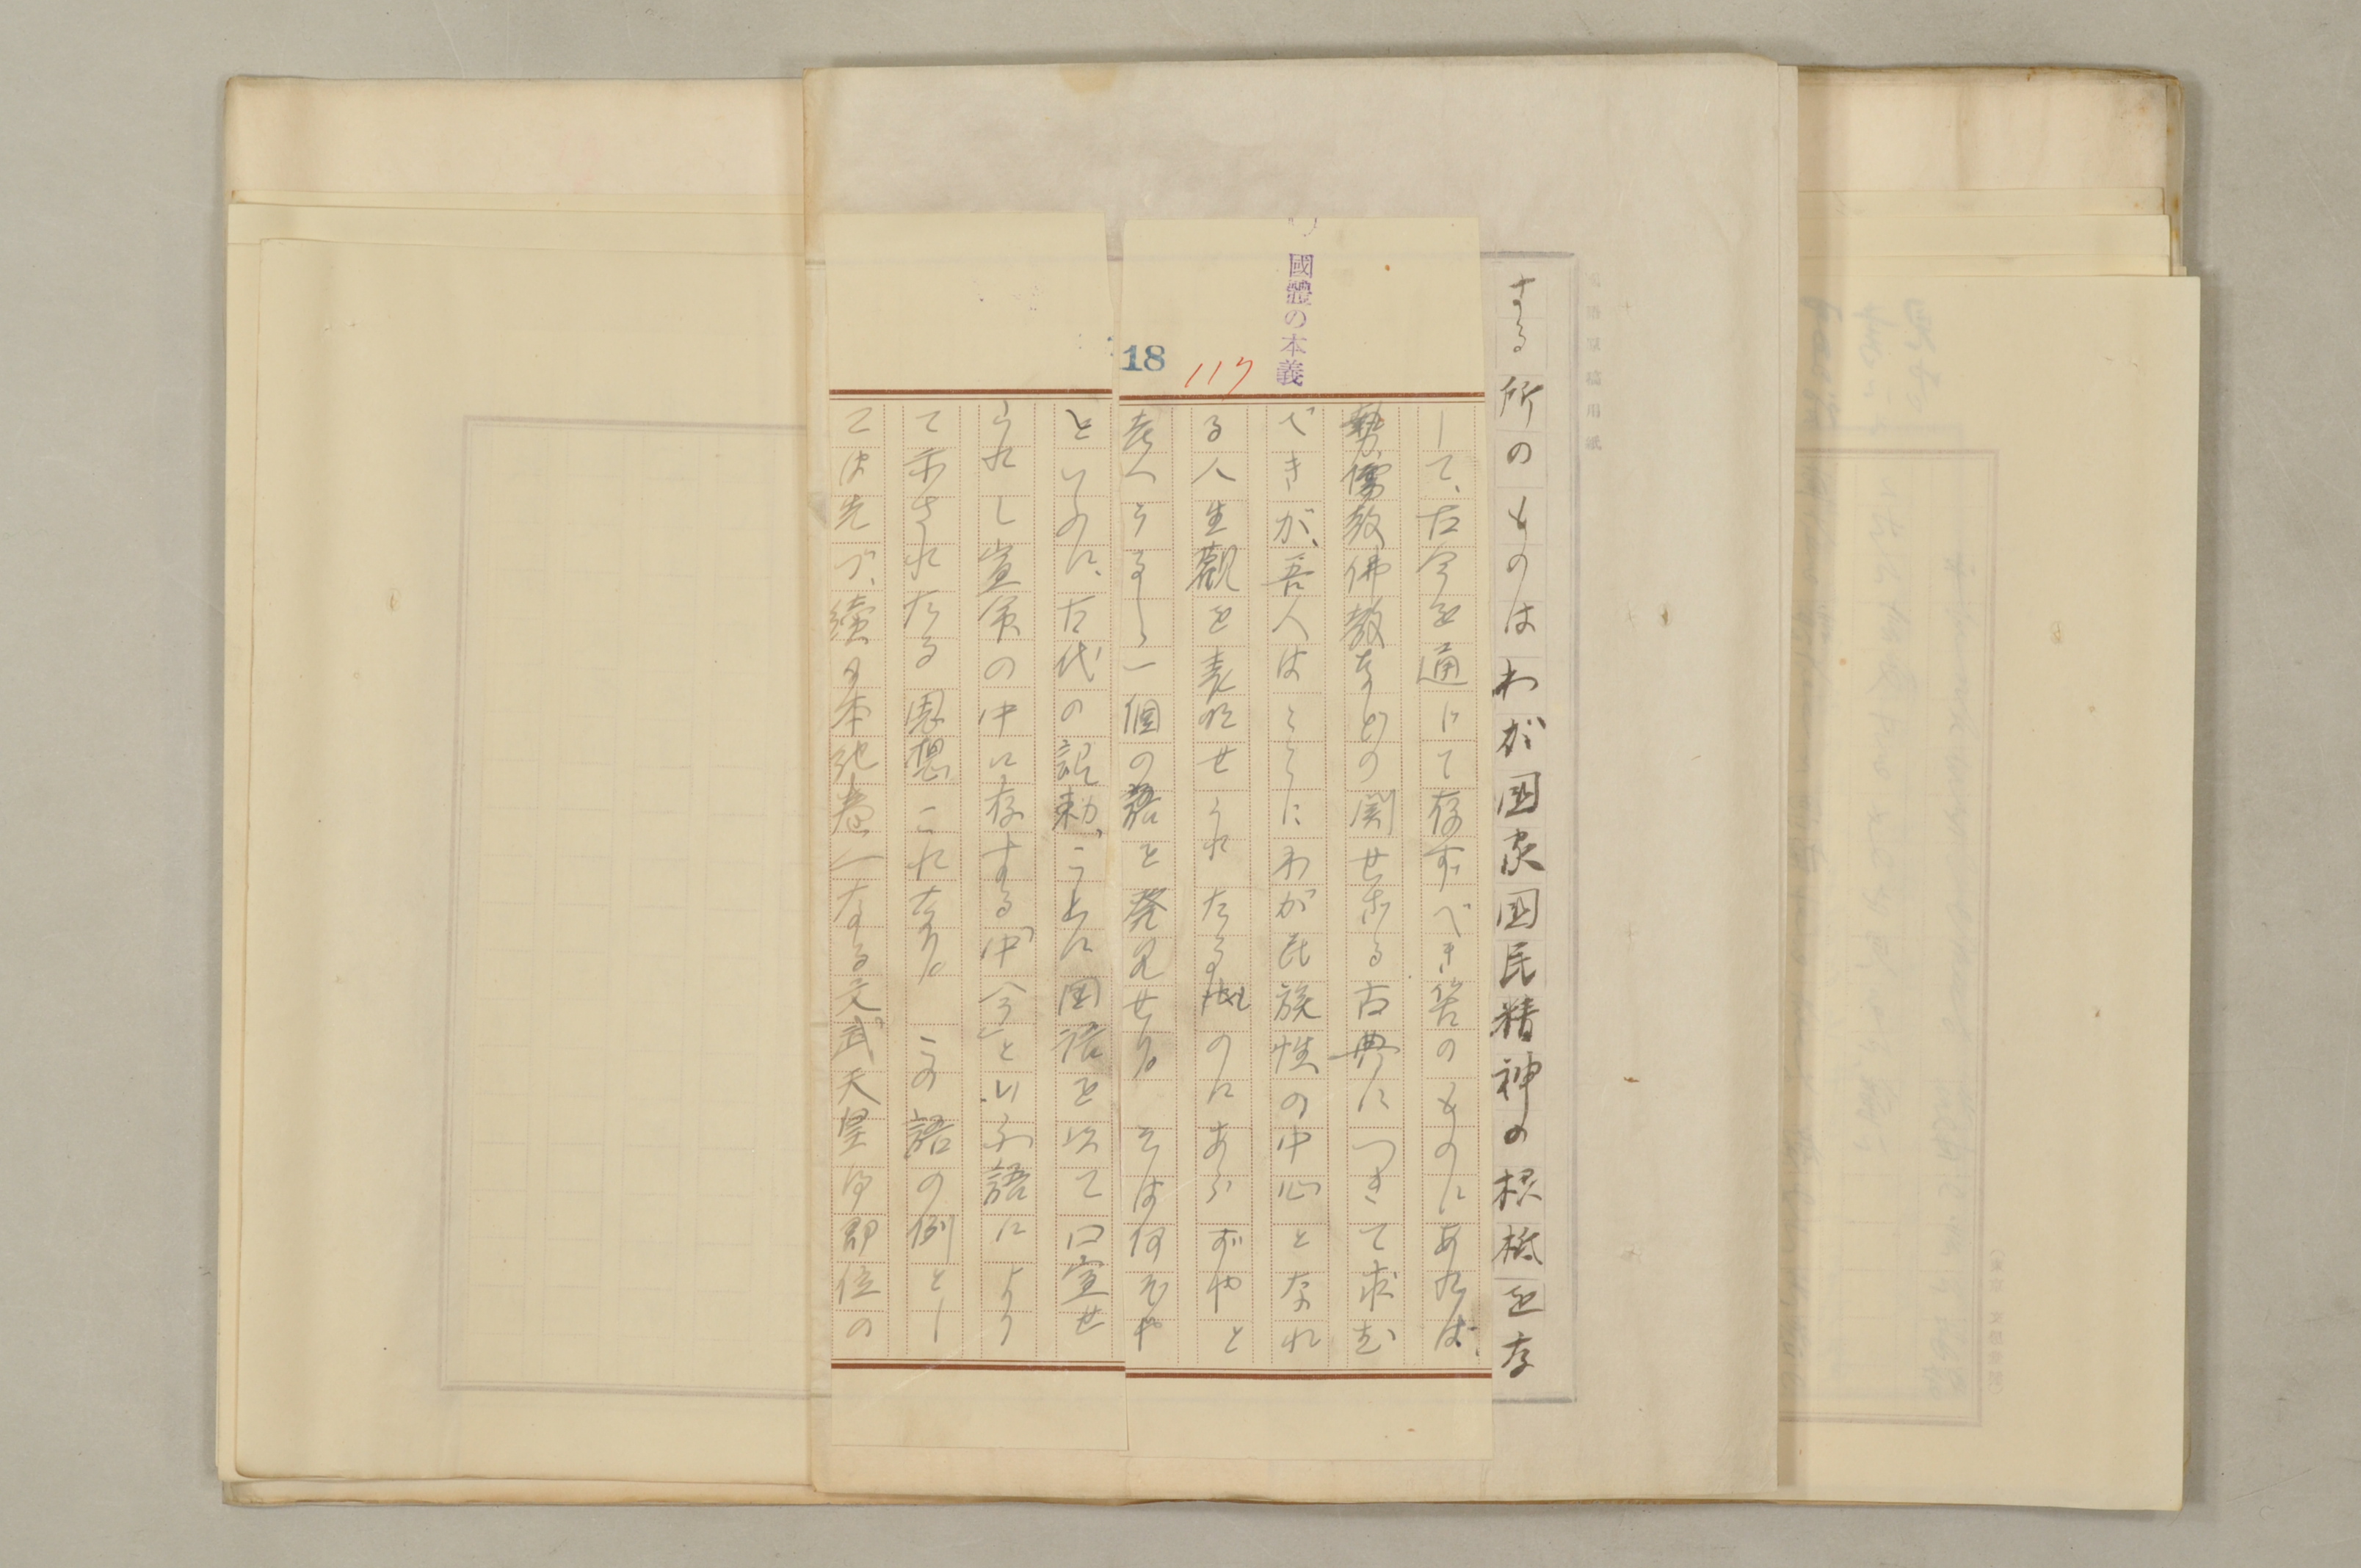 する所のものはわが国家国民精神の根柢を存
して、古今を通じて存すべき筈のものにあれば、
勢、儒教佛教などの関せざる古典につきて求む
べきが、吾人はここにわが民族性の中心となれ
る人生觀を表現せられたるものにあらずやと
考へらるゝ一個の語を発見せり。そは何ぞや
といふに、古代の詔勅、ことに国語を以て口宣せ
られし宣命の中に存する「中今」といふ語により
て示されたる思想これなり。この語の例とし
ては先づ、續日本紀巻一なる文武天皇御即位の
國體の本義
18
117